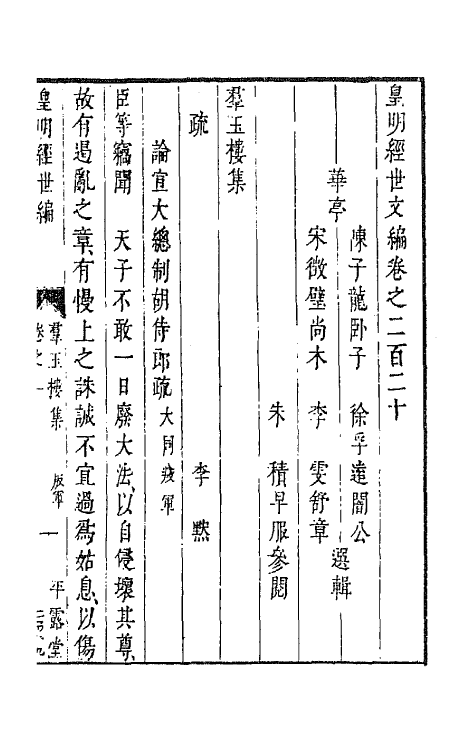 皇明經世文編卷之二百二十
華亭
陳子龍臥子 徐孚遠闇公
宋徵璧尚木 李雯舒章 選輯
朱積早服參閱
羣玉樓集 李默
疏
論宣大總制胡侍郎疏 大同叛軍
臣等竊聞 天子不敢一日廢大法、以自侵壞其尊、
故有遏亂之章、有慢上之誅誠不宜過爲姑息、以傷
皇明經世編 卷之 羣玉樓集 叛軍 一 平露堂